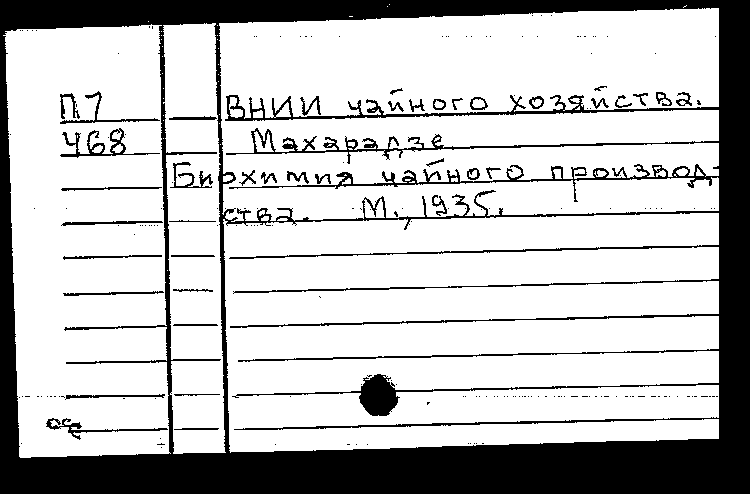 П7 ВНИИ чайного хозяйства.
Ч68 Махарадзе
Биохимия чайного производ-
ства. М., 1935.